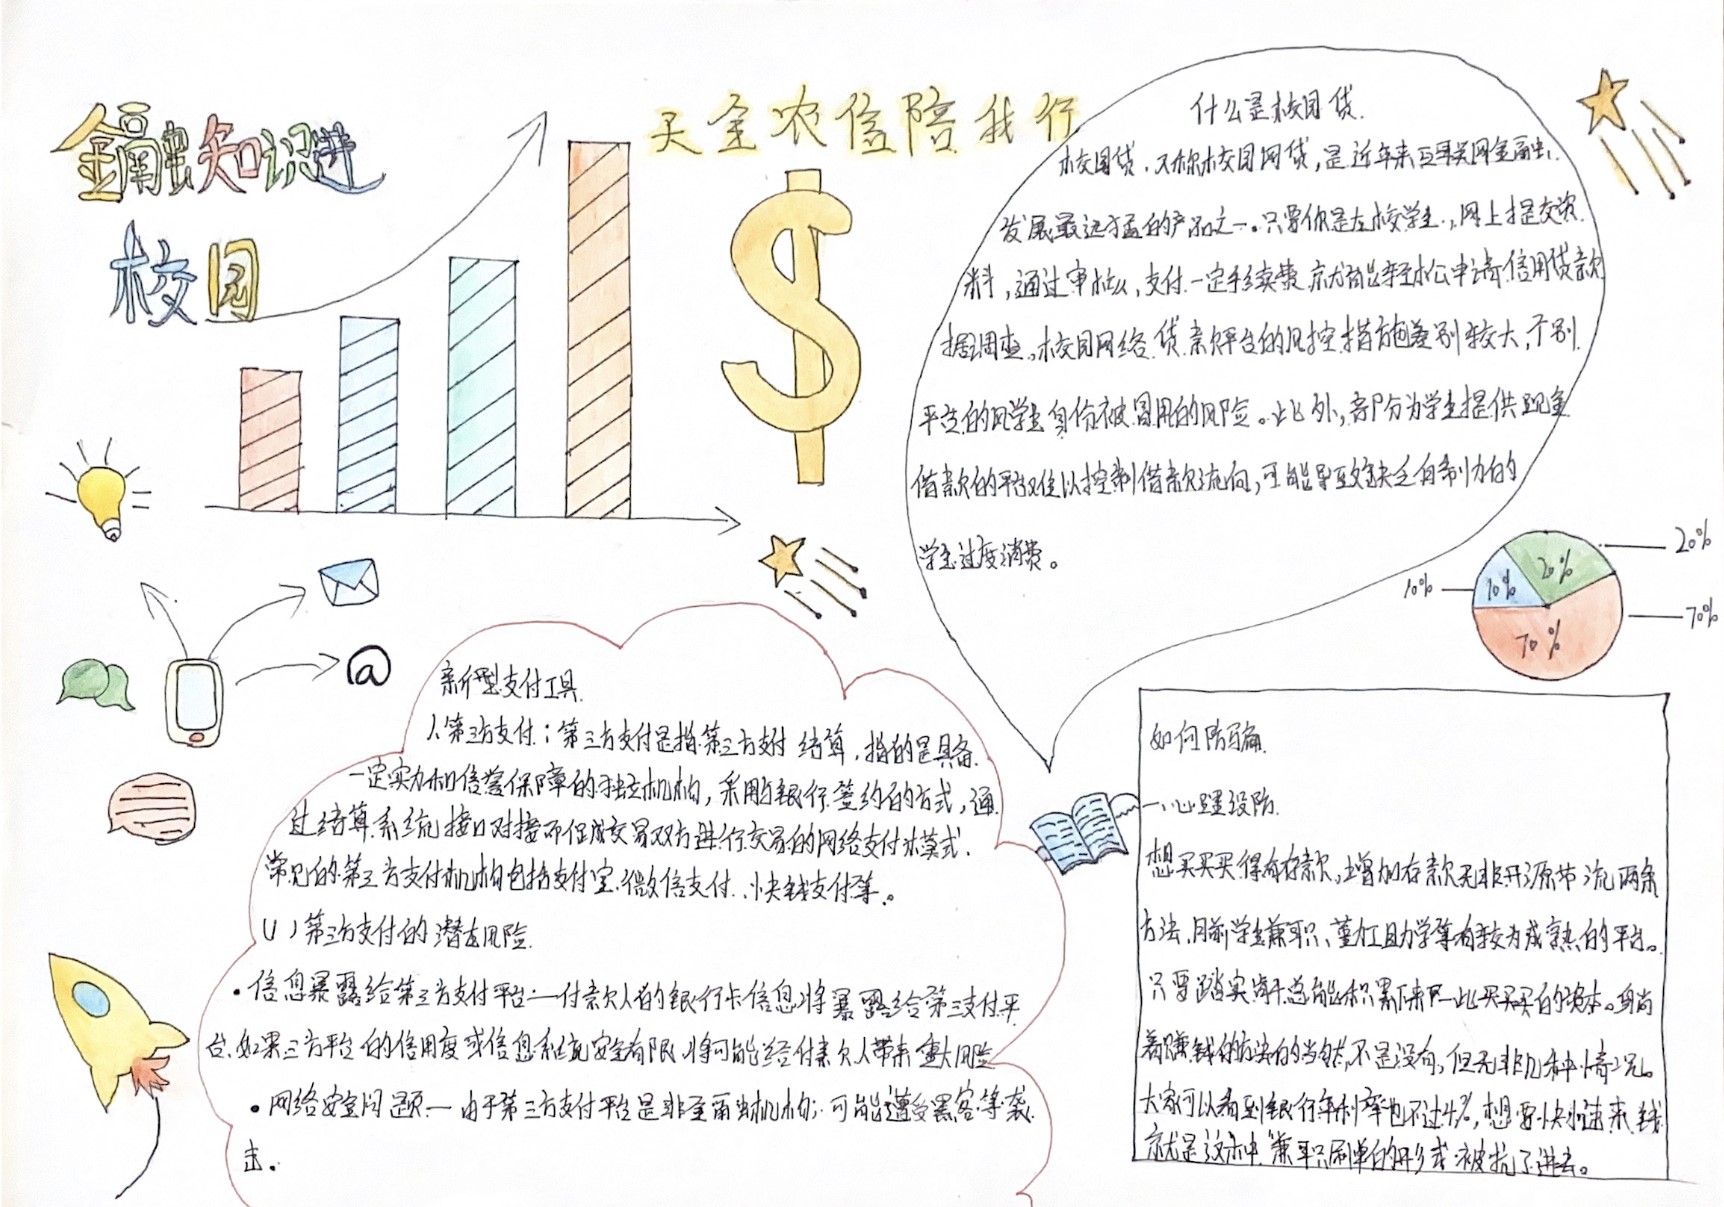 金融知识进
校园
天全农信陪我行
什么是校园贷.
校园贷,又称校园网贷,是近年来互联网金融
发展最迅猛的产品之一。只要你是在校学生,网上提交资
料,通过审核,支付一定手续费就能轻松申请信用贷款
据调查,校园网络贷款平台的风控措施差别较大,个别
平台的风学生身份被冒用的风险。此外,部分为学生提供现金
借款的平台难以控制借款流向,可能导致缺乏自制力的
学生过度消费。
20%
10%
10%
20%
70%
70%
@
新型支付工具
1.第三方支付:第三方支付是指第三方支付结算,指的是具备
一定实力和信誉保障的独立机构,采用与银行签约的方式,通
过结算系统接口对接而促成交易双方进行交易的网络支付模式.
常见的第三方支付机构包括支付宝、微信支付、快钱支付等。
(1)第三方支付的潜在风险.
•信息暴露给第三方支付平台:一付款人的银行卡信息将暴露给第三支付平
台.如果三方平台的信用度或信息系统安全有限,将可能给付款人带来重大风险
•网络安全问题一由于第三方支付平台是非金融机构;可能遭受黑客等袭
击。
如何防骗.
一、心理设防.
想买买买得有存款,增加存款无非开源节流两条
方法,目前学生兼职、勤工助学等有较为成熟的平台。
只要踏实肯干总能积累下来一些买买买的资本。
着赚钱的方法的当然不是没有,但无非几种情况。
大家可以看到银行年利率也不过4%,想要快速来钱
就是这种"兼职刷单的形式被坑了进去。